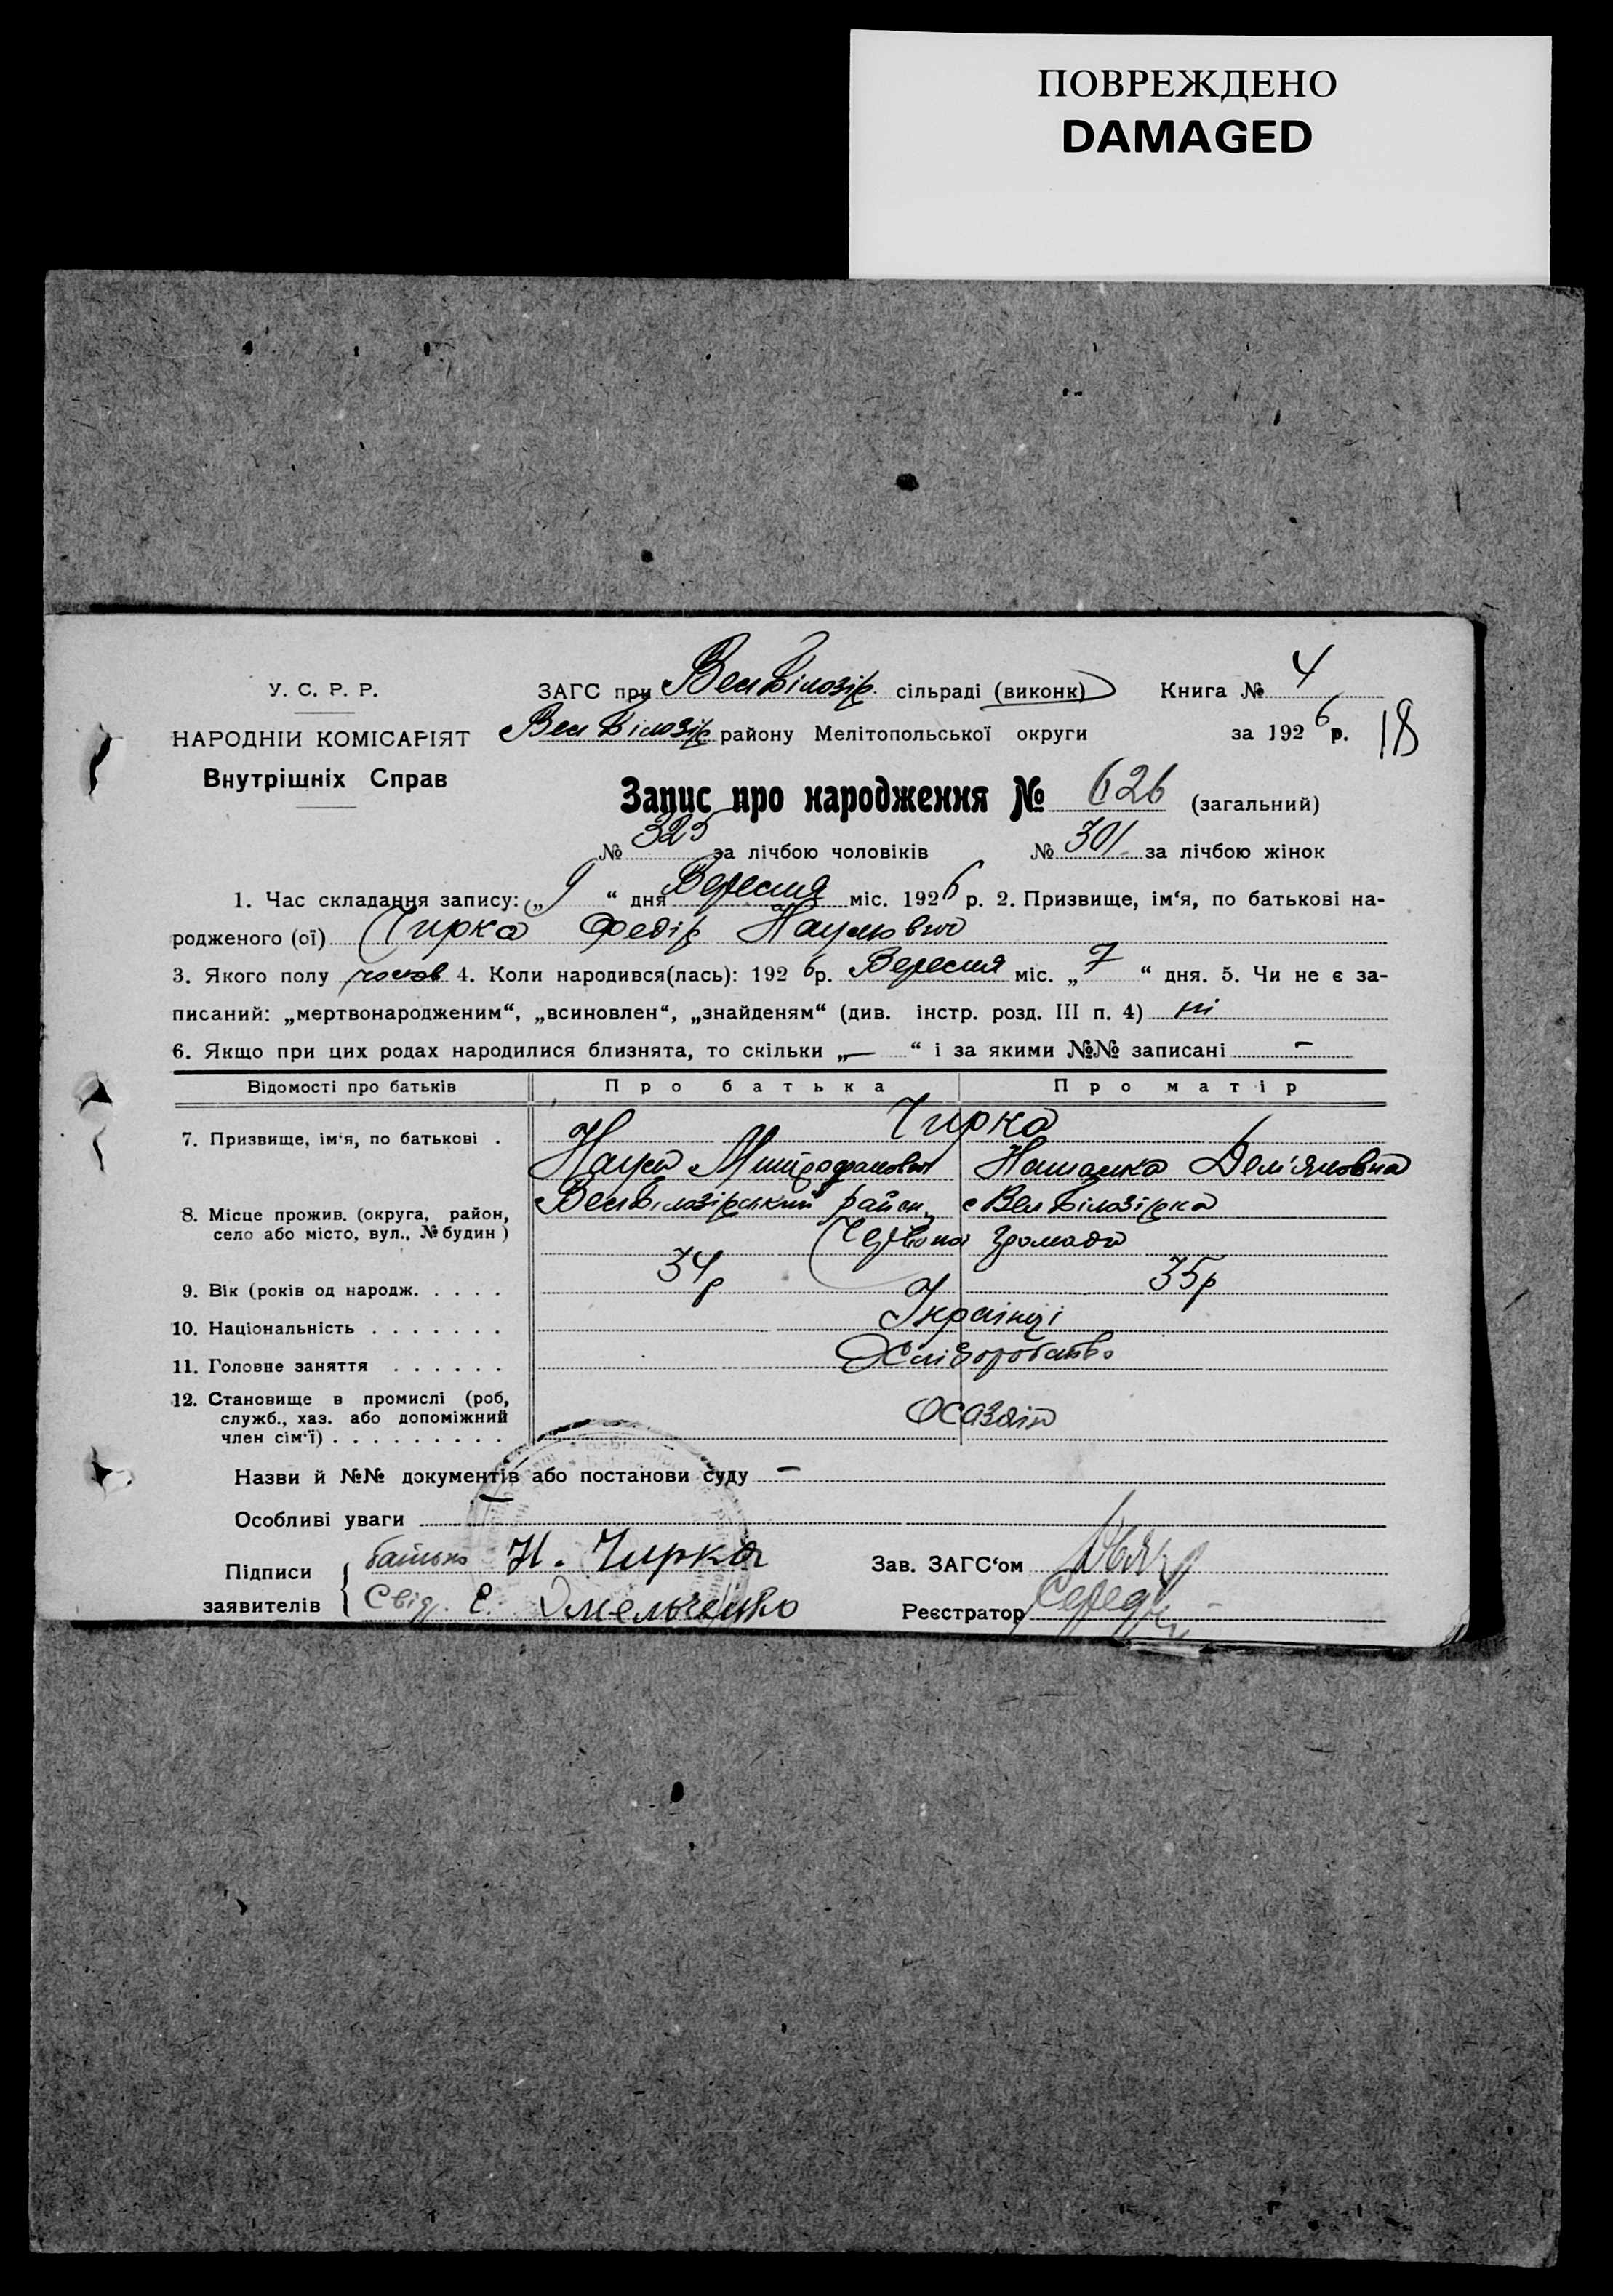 ПОВРЕЖДЕНО
DAMAGED
У. С. Р. Р.
НАРОДНІЙ КОМІСАРІЯТ
Внутрішніх Справ
ЗАГС при Вел Білозір. сільраді (виконк)
Книга № 4
Вел Білозір району Мелітопольської округи
за 1926 р. 18
Запис про народження № 626 (загальний)
№ 325 за лічбою чоловіків № 301 за лічбою жінок
1. Час складання запису: „9“ дня Вересня міс. 1926 р. 2. Призвище, ім‘я, по батькові на-
родженого (ої) Чирка Федір Наумович
3. Якого полу чолов 4. Коли народився(лась): 1926 р. Вересня міс. „7“ дня. 5. Чи не є за-
писаний: „мертвонародженим“, „всиновлен“, „знайденям“ (див. інстр. розд. III п. 4) ні
6. Якщо при цих родах народилися близнята, то скільки „—“ і за якими №№ записані —
Відомості про батьків Про батька Про матір
7. Призвище, ім‘я, по батькові . Чирка
Наум Митрофанович Наталка Дем'яновна
8. Місце прожив. (округа, район, село або місто, вул., № будин) Велбілозірський район, с Вел Білозірка
Червона громада
9. Вік (років од народж. . . . . 34 р 35 р
10. Національність . . . . . . . Українці
11. Головне заняття . . . . . . Хліборобство
12. Становище в промислі (роб,
служб., хаз. або допоміжний
член сім‘ї) . . . . . . . . .
Назви й №№ документів або постанови суду —
Особливі уваги
Підписи
заявителів
батько Н. Чирка
Свід. Е. Омельченко
Зав. ЗАГС‘ом
Реєстратор